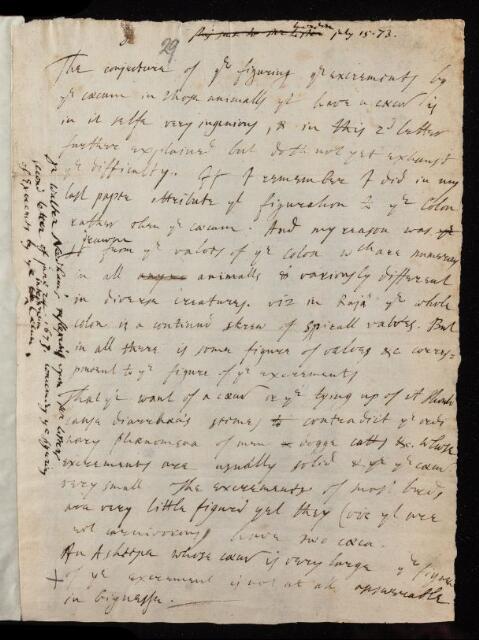 29
London July 15. 73.
The conjecture of ye figuring ye excrements by
ye cæcum in those animalls yt have a cæcū is
in it selfe very ingenious, & in this 2d letter
further explained but doth not yet exhaust
ye difficulty. If I remember I did in my
last paper attribute yt figuration to ye Colon
rather then ye cæcum. And my reason was
drawne from ye valves of ye colon wch are numerous
in all animalls & variously different
in diverse creatures. viz in Raja ye whole
colon is a continued skrew of spirall valves. But
in all there is some figure of valves &c corres=
pondent to ye figure of ye excrements
That ye want of a cæcū or ye tying up of it should
cause diarrhœa's seemes to contradict ye ordi
nary phænomena of men dogge catts &c. whose
excrements are usually solid & yet ye cæcū
very small. The excrements of most birds
are very little figured yet they (ove yt are
not carnivorous) have two cæca.
An Ashkopa whose cæcū is very large ye figure
of ye excrement is not at all answerable
in bignesse.
Dr Walter Needham's upon Mr Lister's
second letter of 1673. concerning ye figuring
of Excrements by ye Cæcum.